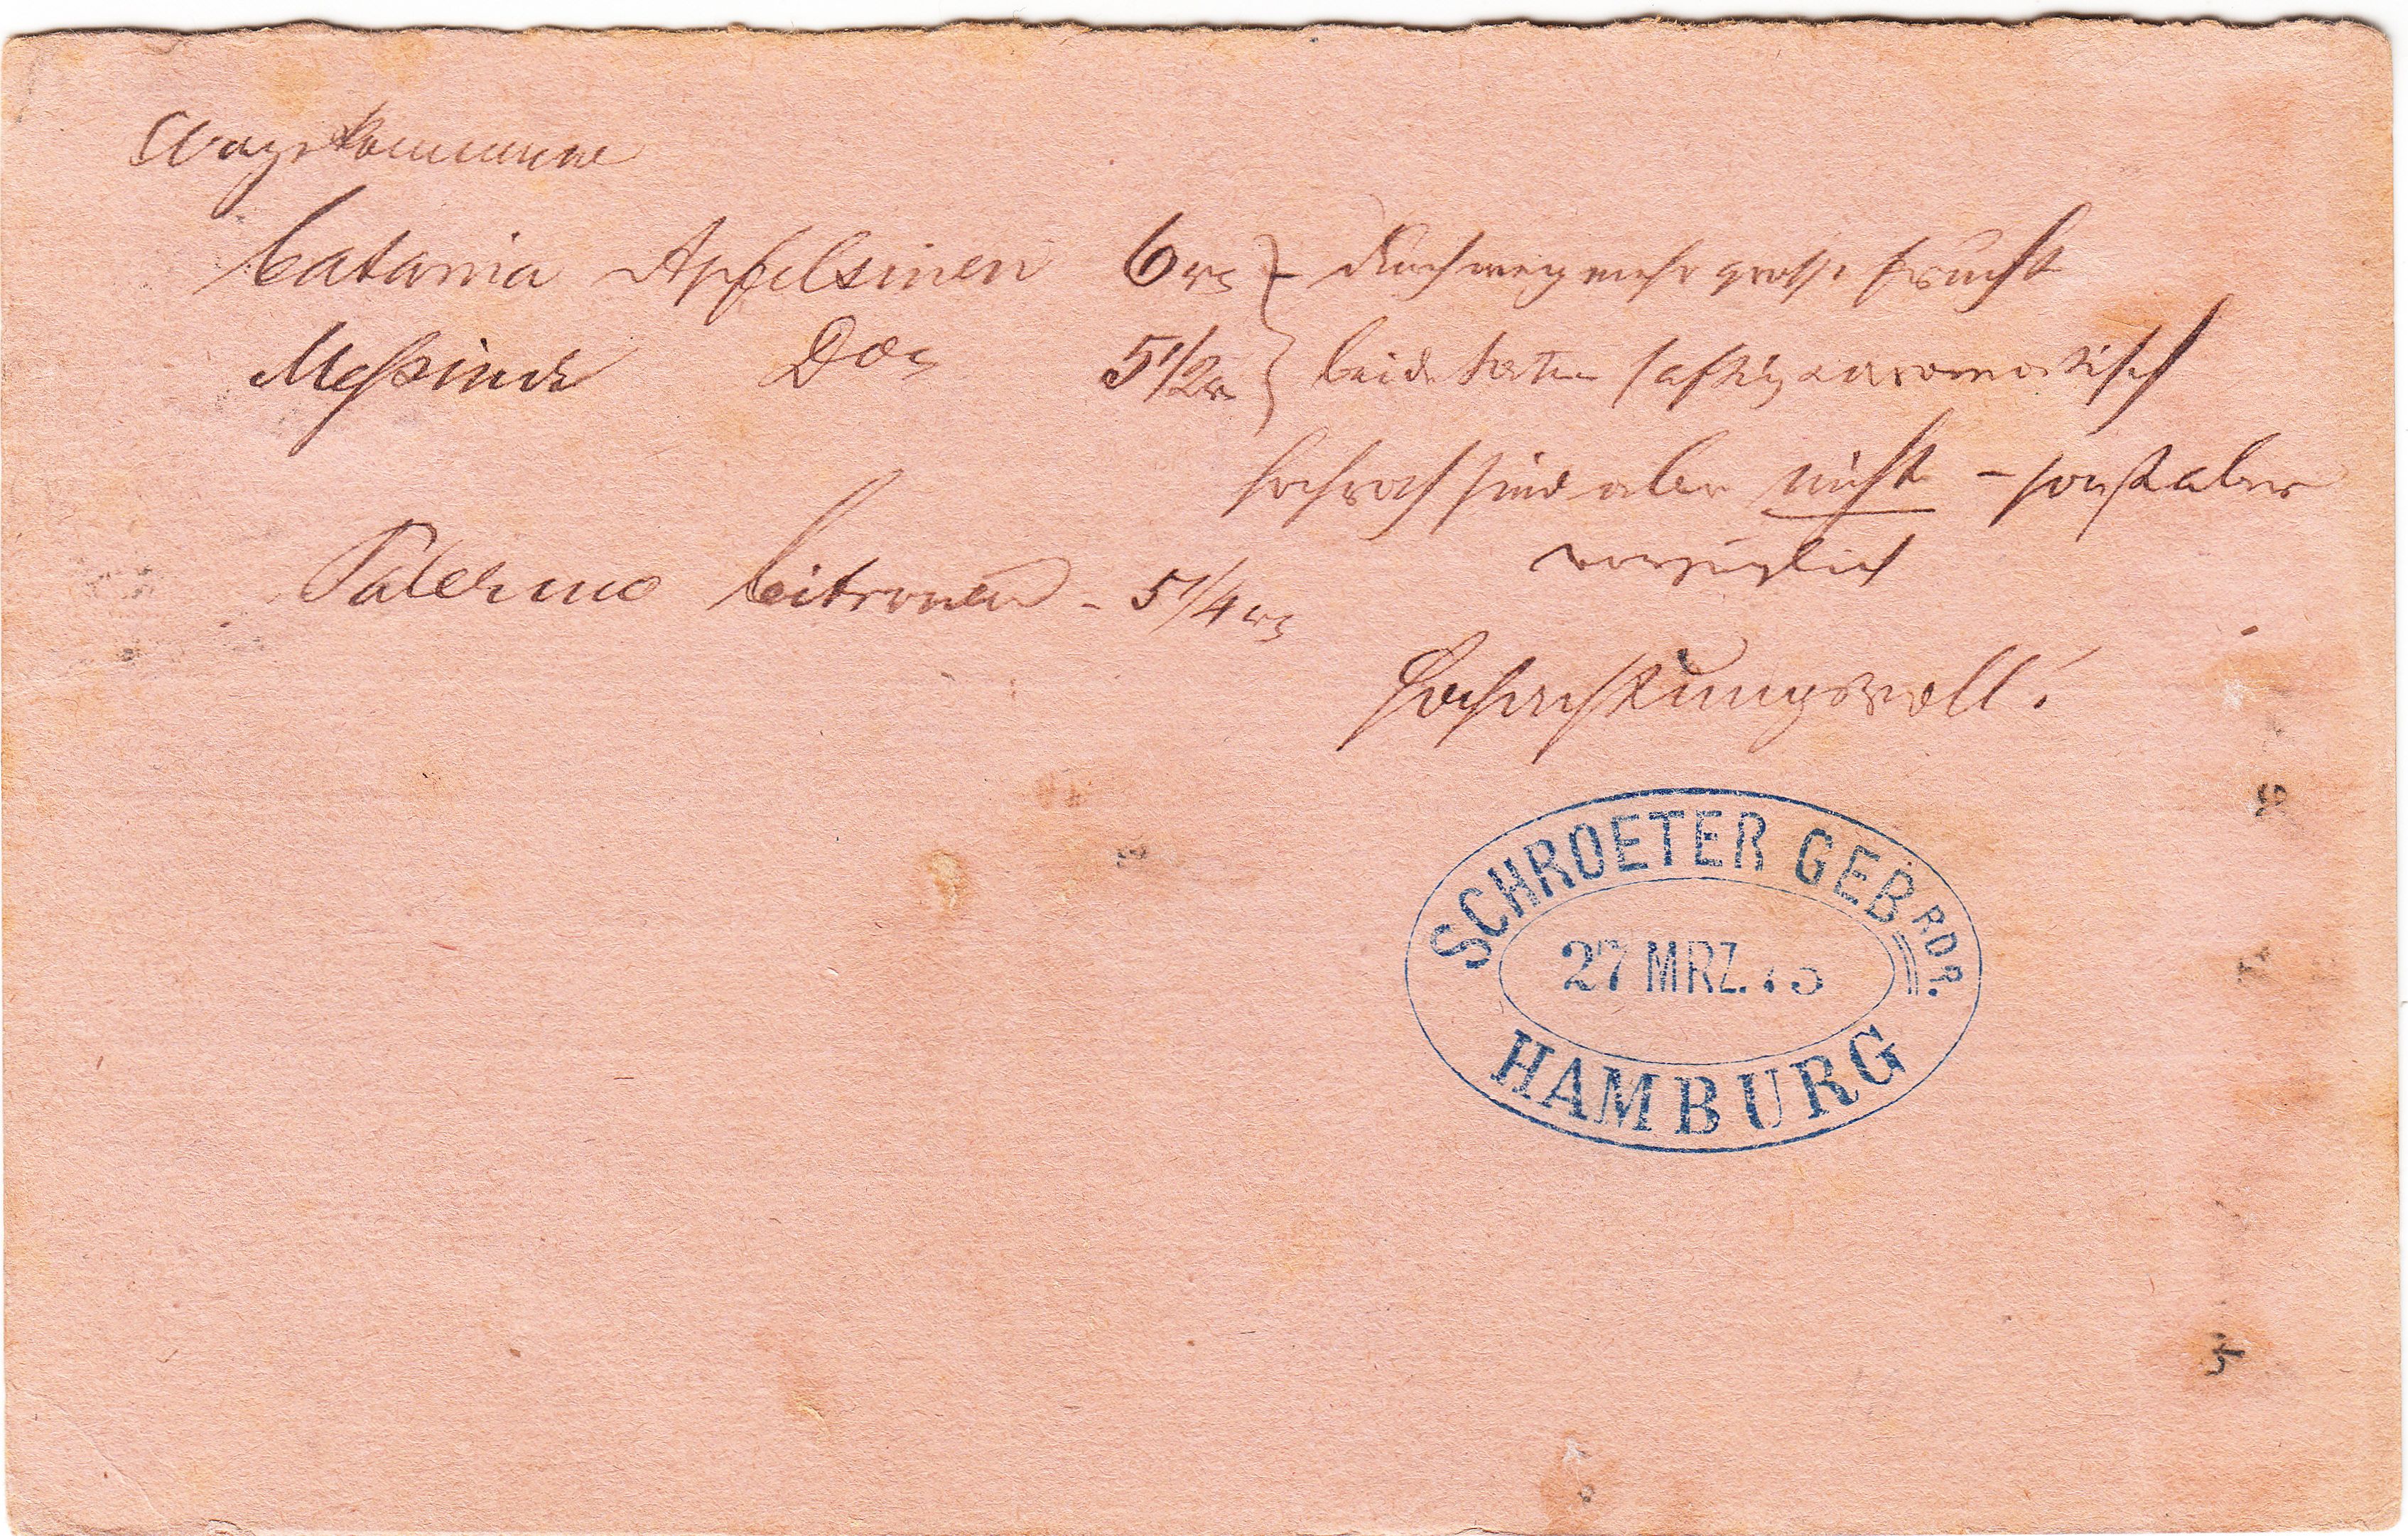 Angekommen
Catania Apfelsinen 6 – durchweg mehr grosse Frucht
Messina Do 5 1/2 beide Sorten saftig & aromatisch
hochroth sind aber nicht – sonst aber
vorzüglich
Palermo Citronen – 5 1/4
Hochachtungsvoll!
SCHROETER GEBRDR.
27 MRZ. 
HAMBURG